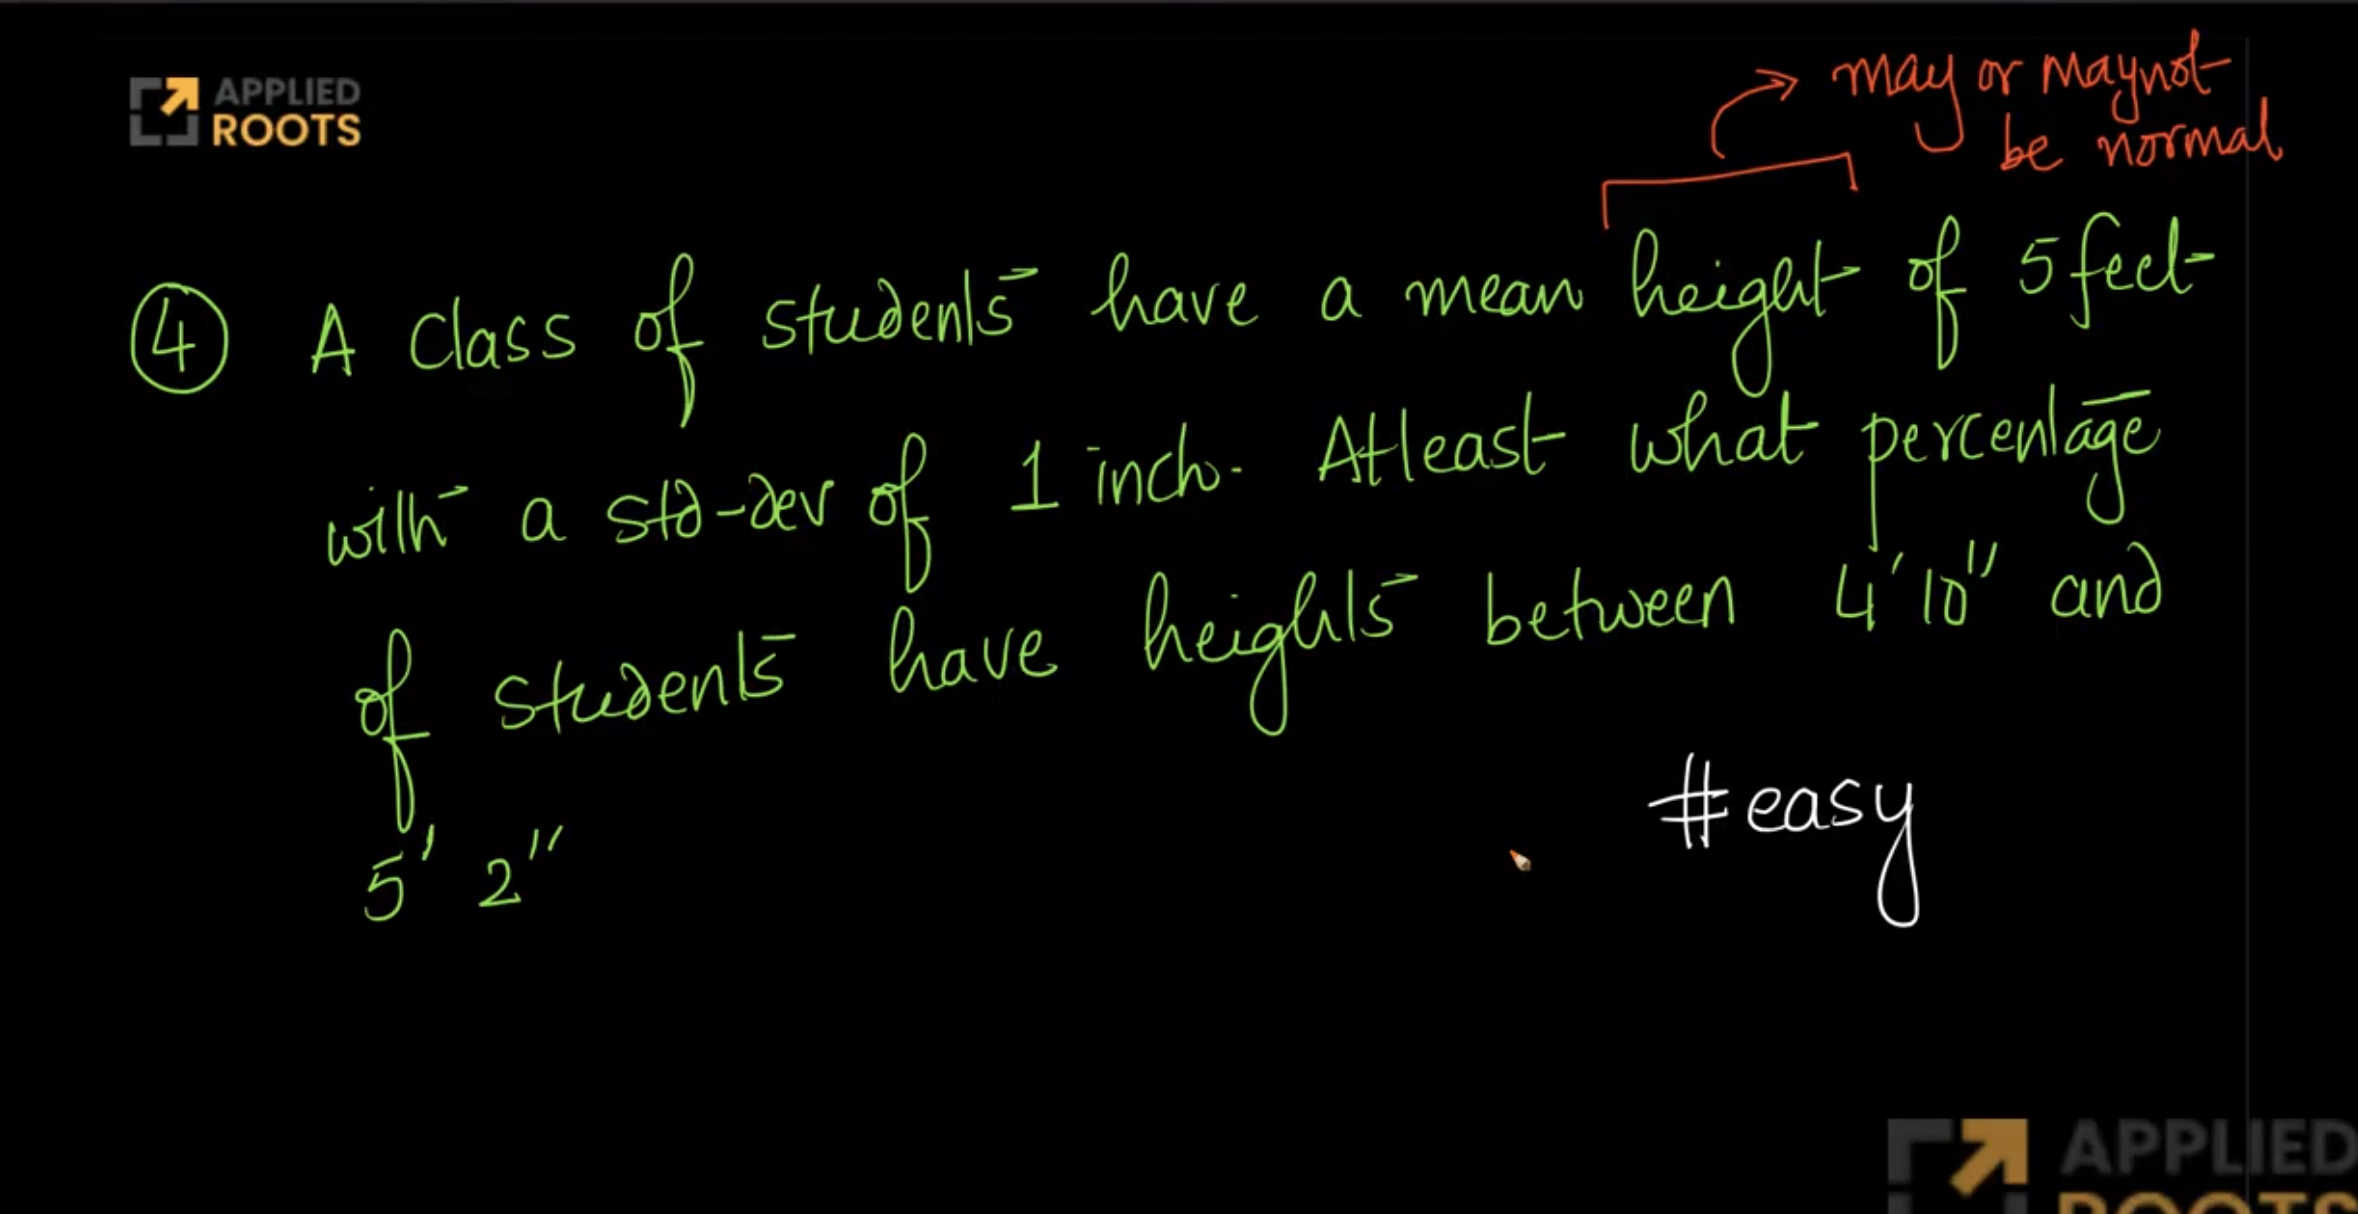 APPLIED
ROOTS
may or may not
be normal
4 A class of students have a mean height of 5 feet
with a std-dev of 1 inch. Atleast what percentage
of students have heights between 4'10" and
5' 2"
#easy
APPLIED
ROOTS